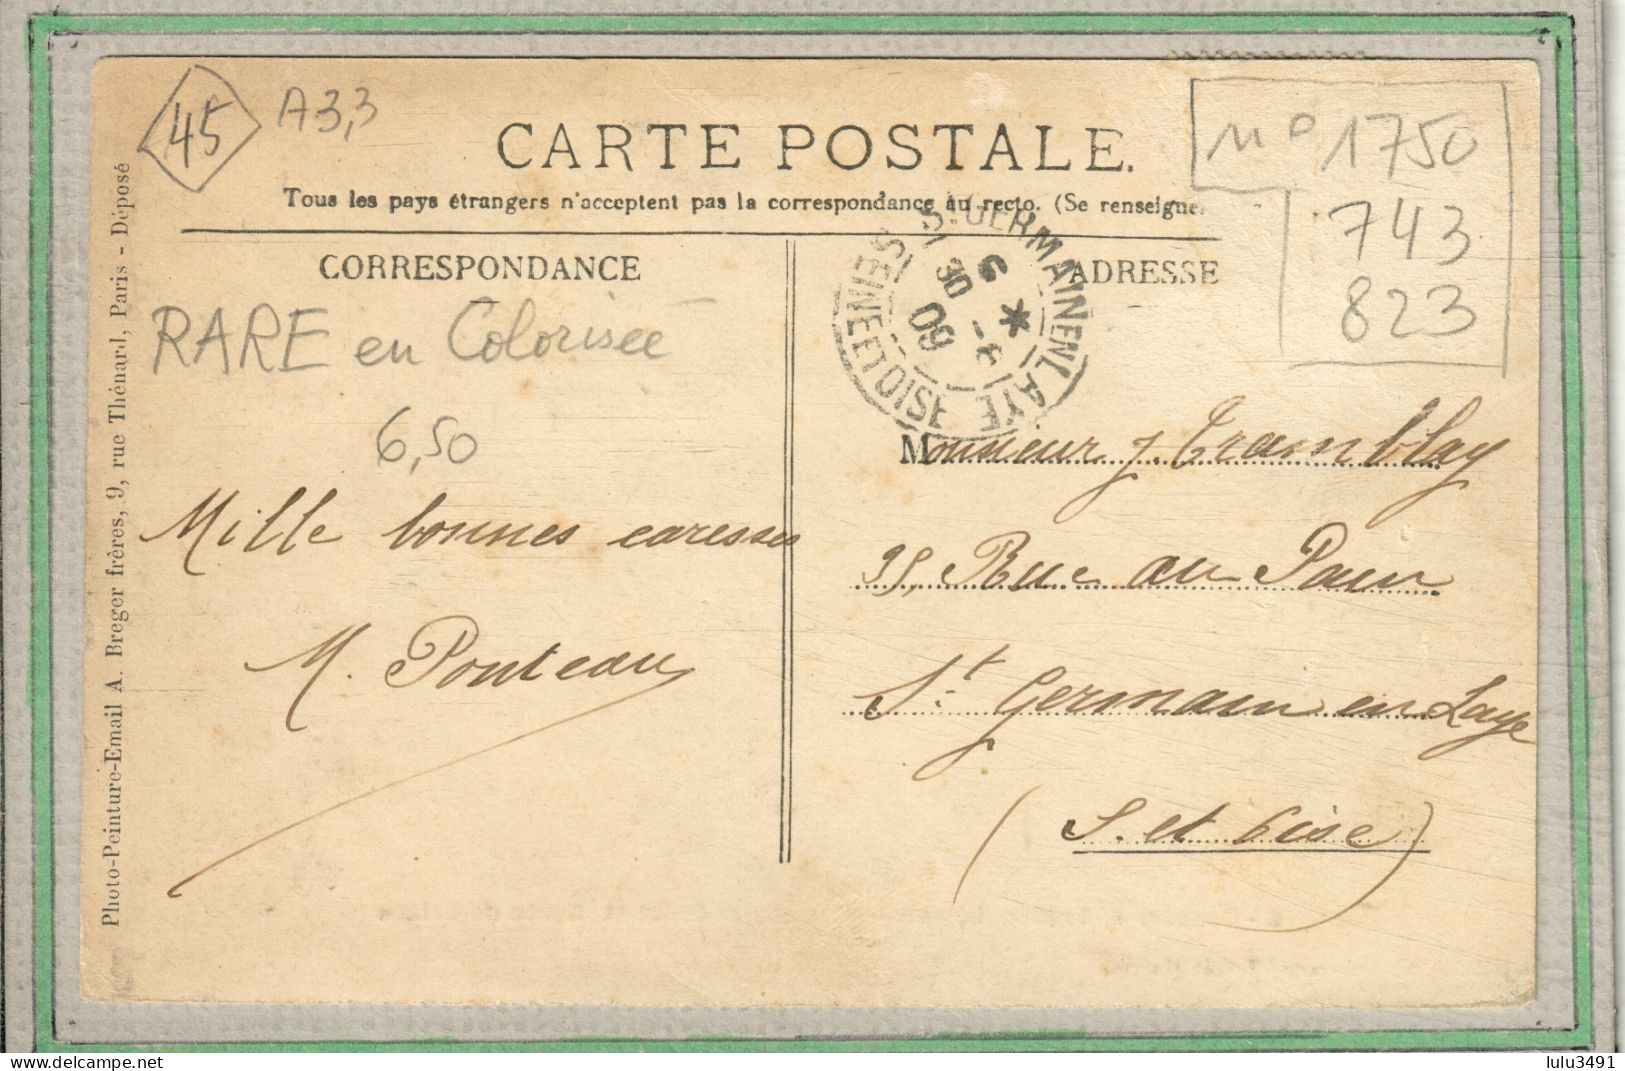 45
A3,3
N° 1750
743
823
CARTE POSTALE.
Tous les pays étrangers n'acceptent pas la correspondance au recto. (Se renseigne
CORRESPONDANCE
ADRESSE
ST GERMAIN EN LAYE
SEINE ET OISE
6 30
6 - 09
RARE en Colorisée
6,50
Mille bonnes caresses
M. Ponteau
Monsieur J. Tramblay
Rue au Pain
St Germain en Laye
(S. et Oise)
Photo-Peinture-Email A. Breger frères, 9, rue Thénard, Paris - Déposé
lulu3491